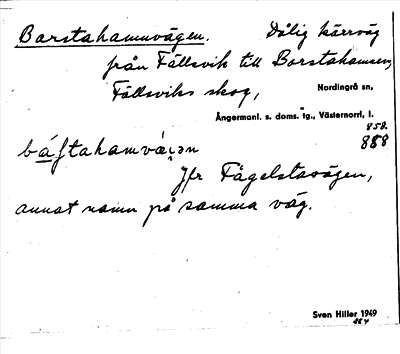 Barstahamnvägen. Dålig kärrväg
från Fällsvik till Barstahamn,
Fällsviks skog, Nordingrå sn,
Ångermanl. s. doms. tg., Västernorrl, l.
858.
888
Jfr Fågelstavägen,
annat namn på samma väg.
Sven Hiller 1949